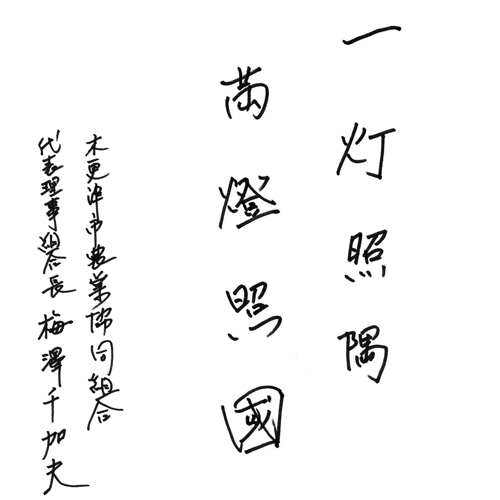 一灯照隅
萬燈照國
木更津市農業協同組合
代表理事組合長 梅澤千加夫